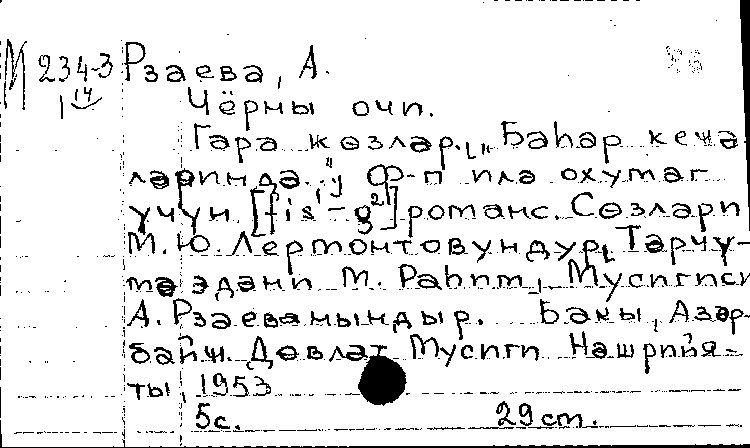 М 234-3 Рзаева, А.
14
Чёрны очи.
Гара көзләр. [„Баһар кечә-
ләриндә."] Ф-п илә охумаг
үчүн [fis¹-g²] романс. Сөзләри
М.Ю. Лермонтовундур, Тәрчү-
мә эдәни М. Раһим, Мусигиси
А. Рзаеванындыр. Бакы, Азәр-
байҹ. Дөвләт Мусиги Нәшрийя-
ты, 1953
5с. 29 cm.